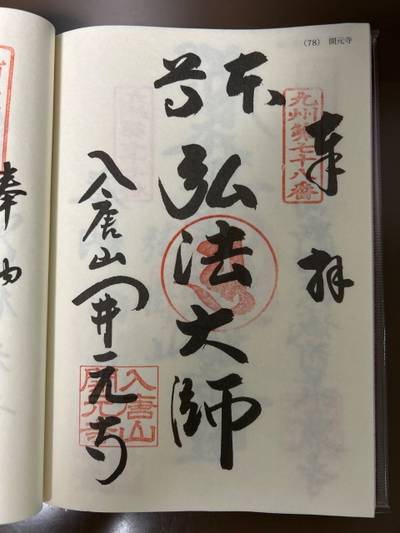 (78) 開元寺
九州第七十八番
奉拝
本尊
弘法大師
入唐山開元寺
入唐山
開元寺
奉納